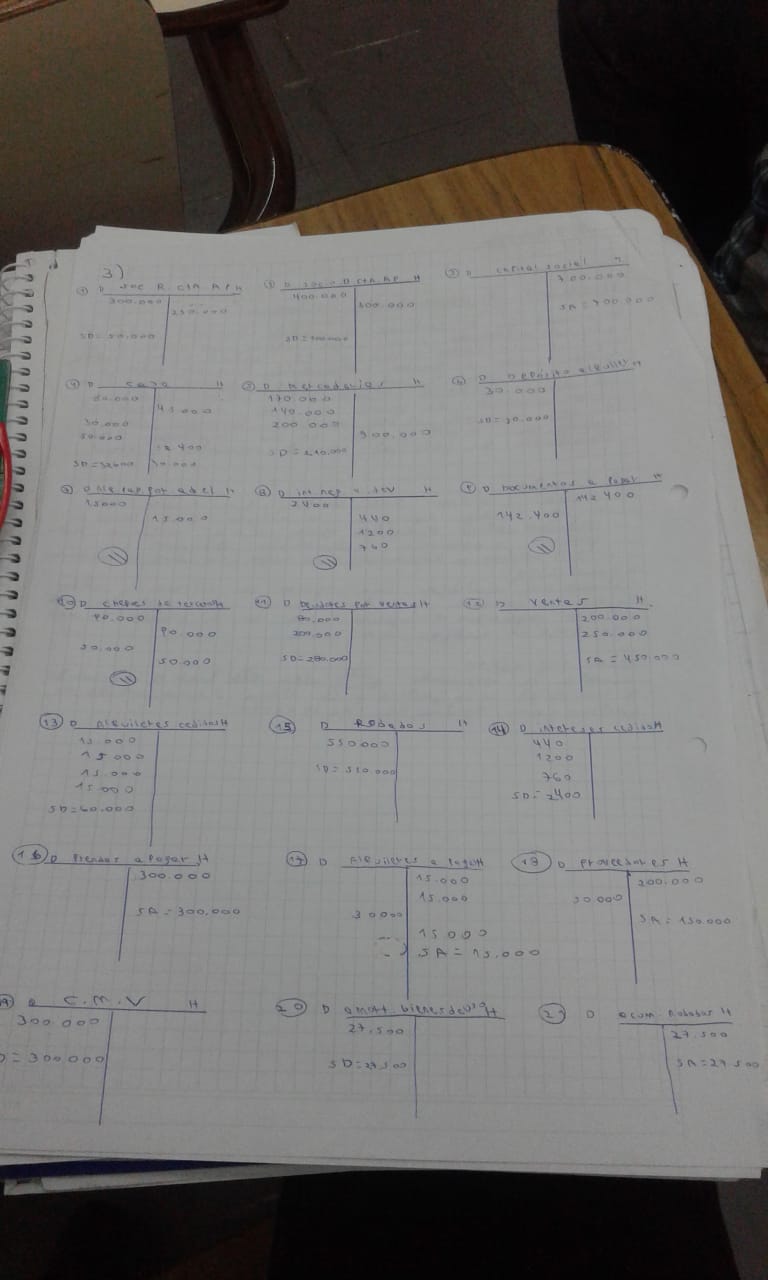 3)
D SOC R. CTA. AP. H
300.000
250.000
SD = 50.000
D SOC D CTA. AP H
400.000
300.000
SD = 100.000
D capital social
700.000
SA = 700.000
4 D caja H
45.000
30.000
50.000
2400
30.000
D mercaderias H
170.000
140.000
200.000
300.000
SD = 210.000
D Depósito alquiler H
30.000
SD = 30.000
15000
15.000
8 D H
2400
440
1200
760
9 D Documentos a Pagar H
142.400
142.400
10 D cheques de terceros H
90.000
90.000
50.000
50.000
11 D Deudores por ventas H
80.000
200.000
SD = 280.000
12 D ventas H.
200.000
250.000
SA = 450.000
13 D Alquileres cedidos H
15.000
15.000
15.000
15.000
SD = 60.000
15 D Rodados H
550000
SD = 550.000
14 D intereses cedidos H
440
1200
760
SD = 2400
16 D Prendas a Pagar H
300.000
SA = 300.000
17 D Alquileres a Pagar H
15.000
15.000
30000
15000
SA = 15.000
18 D Proveedores H
200.000
50.000
SA = 150.000
C.M.V H
300.000
D = 300.000
20 D amort. bienes de uso H
27.500
SD = 27.500
21 D acum. Rodados H
27.500
SA = 27.500